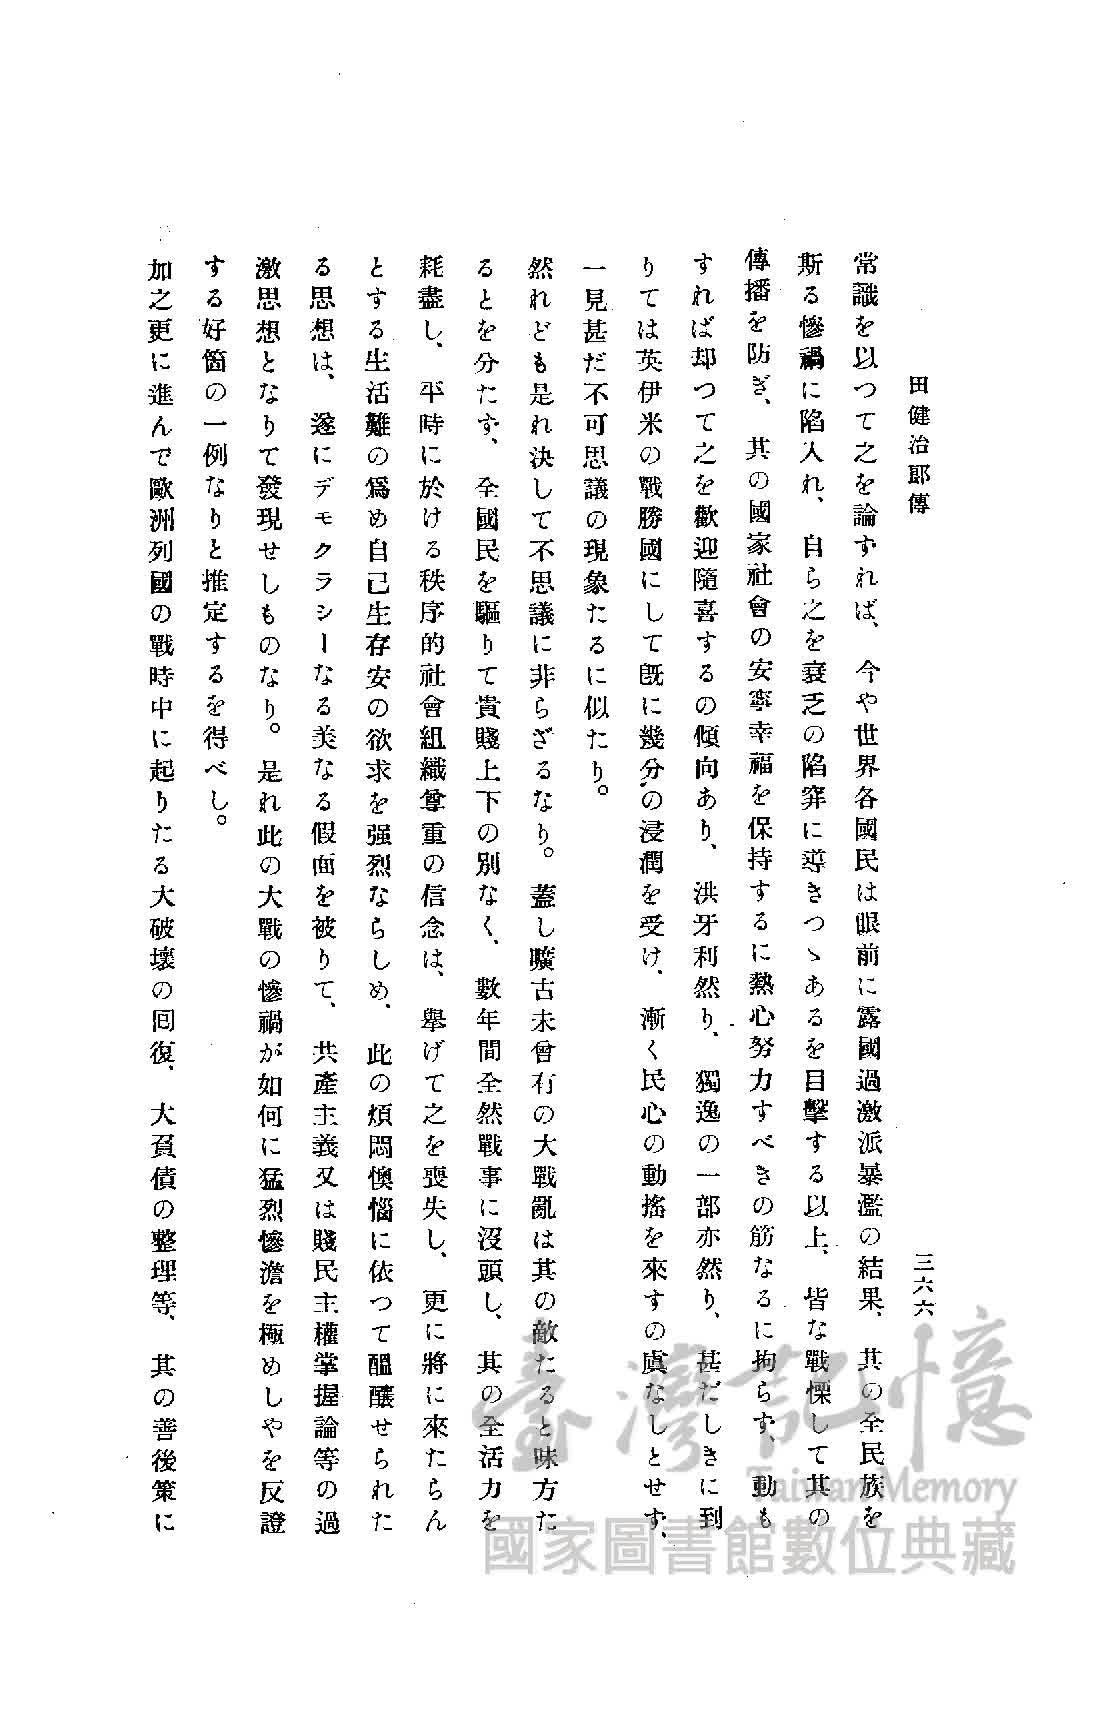 田健治郎傳
三六六
常識を以つて之を論ずれば、今や世界各國民は眼前に露國過激派暴濫の結果、其の全民族を
斯る慘禍に陷入れ、自ら之を衰乏の陷穽に導きつゝあるを目擊する以上、皆な戰慄して其の
傳播を防ぎ、其の國家社會の安寧幸福を保持するに熱心努力すべきの筋なるに拘らず、動も
すれば却つて之を歡迎隨喜するの傾向あり、洪牙利然り、獨逸の一部亦然り、甚だしきに到
りては英伊米の戰勝國にして既に幾分の浸潤を受け、漸く民心の動搖を來すの虞なしとせず、
一見甚だ不可思議の現象たるに似たり。
然れども是れ決して不思議に非らざるなり。蓋し曠古未曾有の大戰亂は其の敵たると味方た
るとを分たず、全國民を驅りて貴賤上下の別なく、數年間全然戰事に沒頭し、其の全活力を
耗盡し、平時に於ける秩序的社會組織尊重の信念は、擧げて之を喪失し、更に將に來たらん
とする生活難の爲め自己生存安の欲求を强烈ならしめ、此の煩悶懊惱に依つて醞釀せられた
る思想は、遂にデモクラシーなる美なる假面を被りて、共產主義又は賤民主權掌握論等の過
激思想となりて發現せしものなり。是れ此の大戰の慘禍が如何に猛烈慘澹を極めしやを反證
する好箇の一例なりと推定するを得べし。
加之更に進んで歐洲列國の戰時中に起りたる大破壞の囘復、大負債の整理等、其の善後策に
臺灣記憶
Taiwan Memory
國家圖書館數位典藏